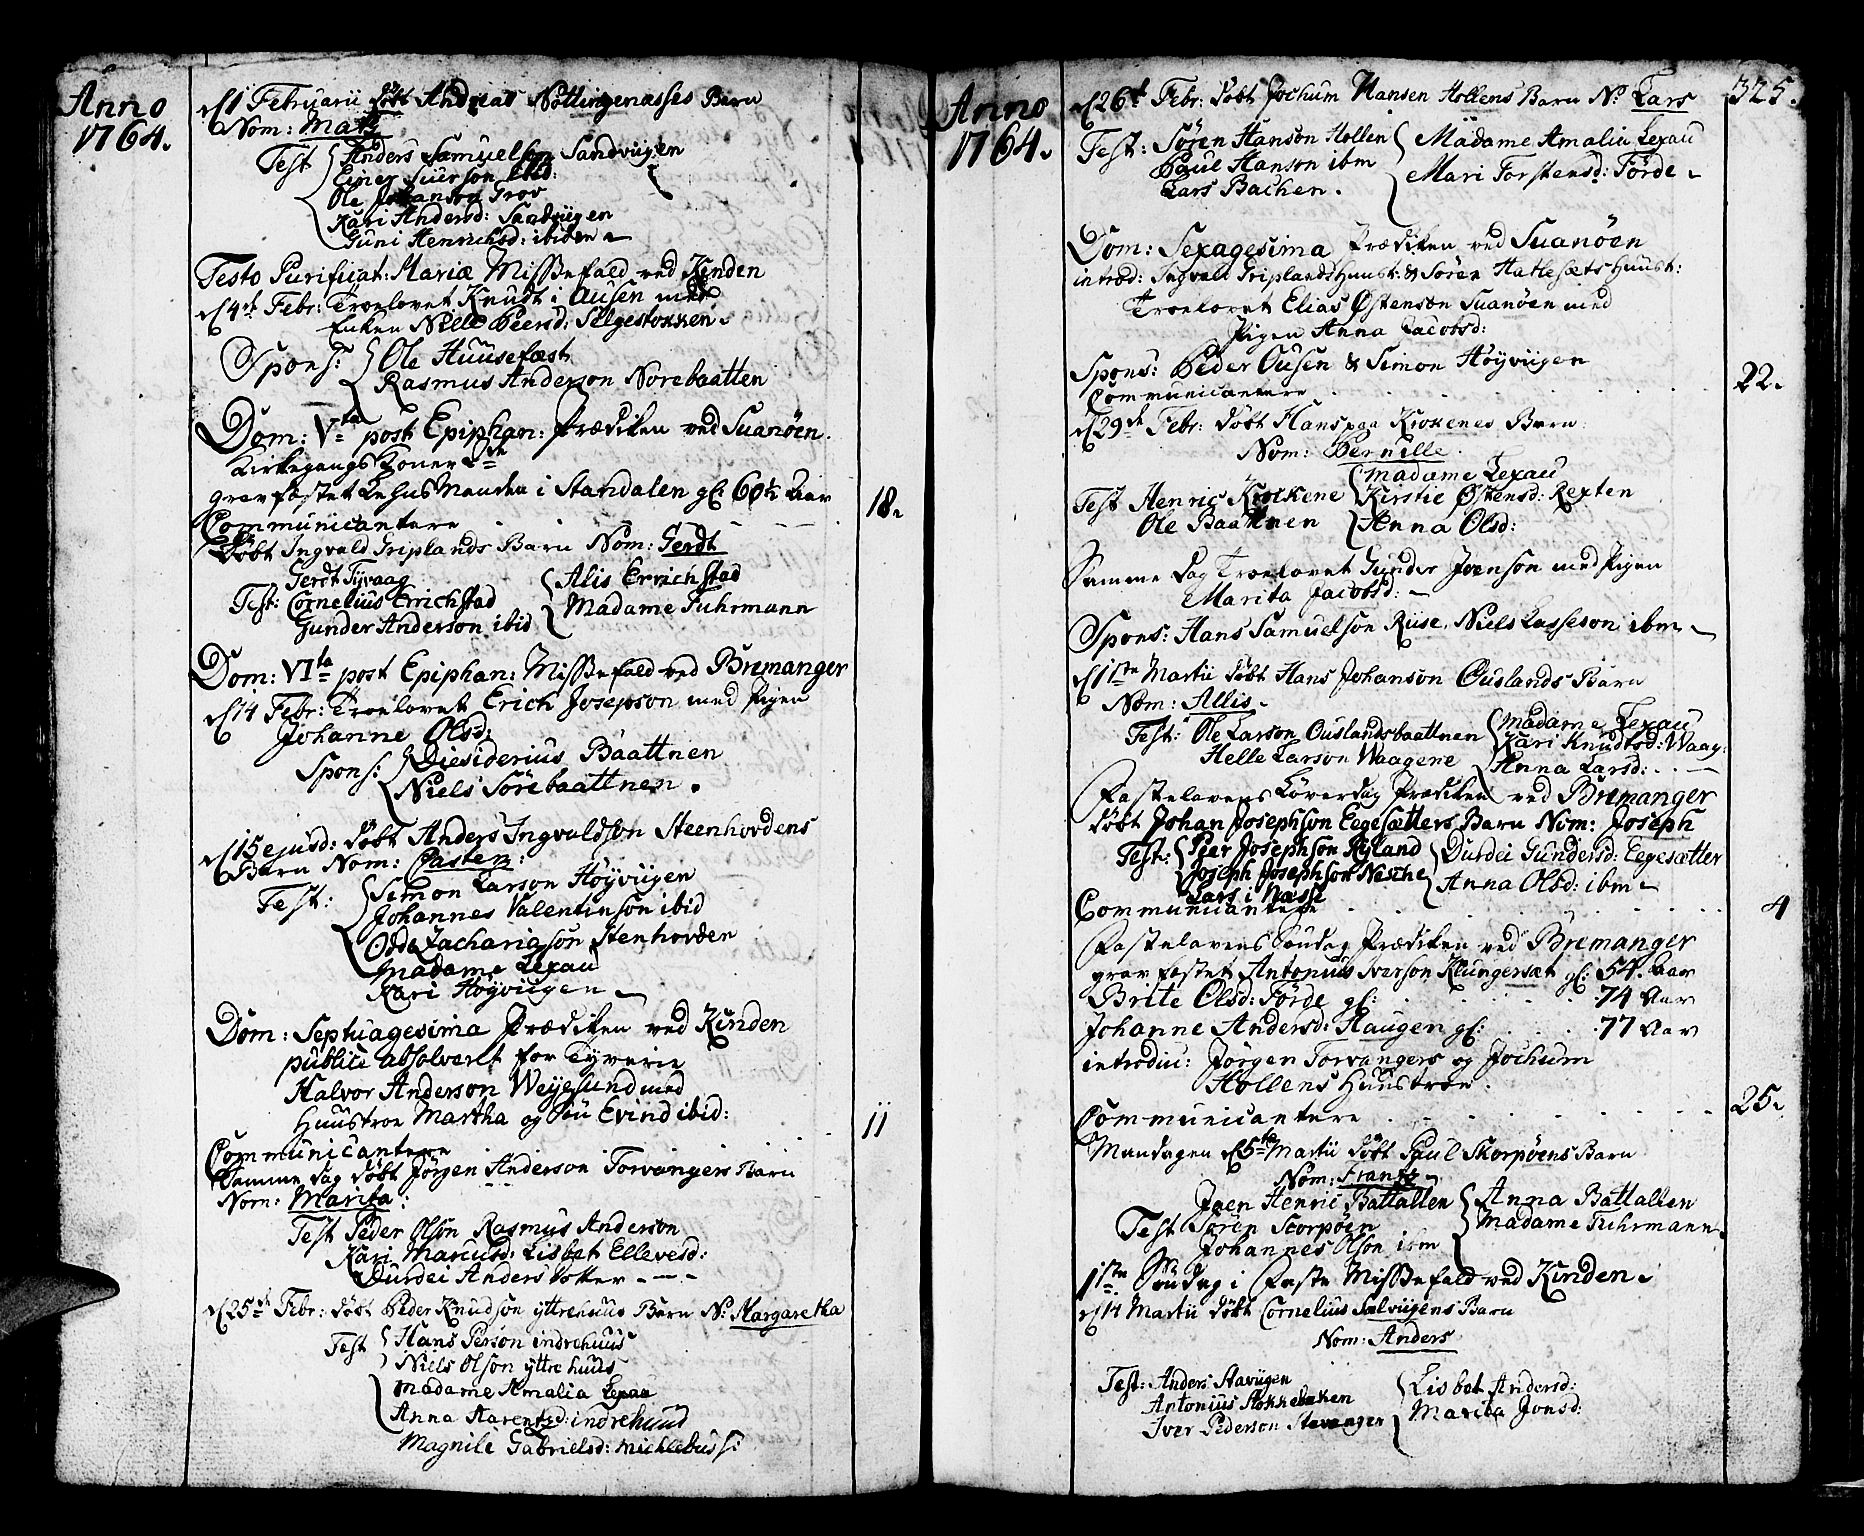 Anno
1764.
d 1 Februarii døbt Andreas Nøttingenæsses Barn
Nom: Mats
Test Anders Samuelson Sandviigen
Einer Siverson ibid:
Ole Johanson Grov
Kari Andersd: Sandviigen
Guni Henrichsd: ibidem
Festo Purificat: Mariæ Missefald ved Kinden
d 4de Febr: Troelovet Knudt i Ausen med
Enken Nille Peersd: Selgestokken.
Spons: Ole Huusefæst
Rasmus Anderson Norebaatten
Dom: Vta post Epiphan: Prædiken ved Suanøen.
Kirkegangs Koner 2de
gravfæstet Lehns Manden i Standalen gl: 60½ Aar
Communicantere 18.
Døbt Ingvald Griplands Barn Nom: Gerdt
Gerdt Tyvaag
Test: Cornelius Errichstad
Gunder Anderson ibid
Alis Errichstad
Madame Fuhrmann
Dom: VIta post Epiphan: Missefald ved Bremanger
d 14 Febr: Troelovet Erich Josepson med Pigen
Johanne Olsd:
Spons: Diesiderius Baattnen
Niels Sørebaattnen.
d 15 ejusd: døbt Anders Ingvaldson Steenhovdens
Barn Nom: Casten:
Test: Simon Larson Høyviigen
Johannes Valentinson ibid
Odde Zachariason Stenhovden
Madame Lexau
Kari Høyviigen
Dom: Septuagesima Prædiken ved Kinden
publice absolveret for Tyverie
Halvor Anderson Weyesund med
Huustroe Martha og Søn Evind ibid:
Communicantere 11
Samme dag døbt Jørgen Anderson Torvangers Barn
Nom: Marita:
Test Peder Olson Rasmus Anderson
Kari Marcusd: Lisbet Ellevesd:
Durdei Anders dotter
d 25de Febr: døbt Peder Knudson yttrehuus Barn N: Margaretha
Test Hans Person indrehuus
Niels Olson yttrehuus
Madame Amalia Lexau
Anna Harentzd: indrehuus
Magnile Gabrielsd: Michlebuss:
Anno
1764.
325.
d 26de Febr: døbt Jochum Hansen Hollens Barn N: Lars
Test: Søren Hanson Hollen
Paul Hanson ibm
Lars Bachen.
Madame Amalia Lexau
Mari Torstensd: Førde
Dom: Sexagesima Prædiken ved Suanøen
introd: Ingvald Griplands Huust: & Søren Hatlesæts Huust:
Troelovet Elias Østenson Suanøen med
Pigen Anna Jacobsd:
Spons: Peder Ousen & Simon Høyviigen
Communicantere 22.
d 29de Febr: døbt Hans paa Krokenes Barn
Nom: Pernille.
Test Henric Krokene
Ole Baattnen
Madame Lexau
Kirstie Østensd: Rexten
Anna Olsd:
Samme dag Troelovet Gunder Joenson med Pigen
Marita Jacobsd:
Spons: Hans Samuelson Riise, Niels Lasseson ibm
d 1ste Martii døbt Hans Johanson Ouslands Barn
Nom: Allis.
Test: Ole Larson Ouslandsbaattnen
Helle Larson Waagene
Madame Lexau
Kari Knudtsd: Waag:
Anna Larsd:
Fastelavens Løverdag Prædiken ved Bremanger
døbt Johan Josephson Eegesætters Barn Nom: Joseph
Test: Peer Josephson Ryland
Joseph Josephson Nesche
Lars i Næsse
Durdei Gundersd: Eegesætter
Anna Olsd: ibm
Communicantere 4
Fastelavens Søndag Prædiken ved Bremanger
gravfæstet Antonius Iverson Klungersæt gl: 54. Aar
Brite Olsd: Førde gl: 74 Aar
Johanne Andersd: Haugen gl: 77 Aar
introduc: Jørgen Torvangers og Jochum
Hollens Huustroer.
Communicantere 25.
Mandagen d 5te Martii døbt Paul Skorpøens Barn
Nom: Frantz
Joen Henric Battallen
Test Søren Scorpøen
Johannes Olson ibm
Anna Battallen
Madame Fuhrmann
1ste Søndag i Faste Missefald ved Kinden.
d 14 Martii døbt Cornelius Sælviigens Barn
Nom: Anders
Test: Anders Stavigen
Antonius Stokkebekken
Iver Pederson Stavangen
Lisbet Andersd:
Marita Jonsd: